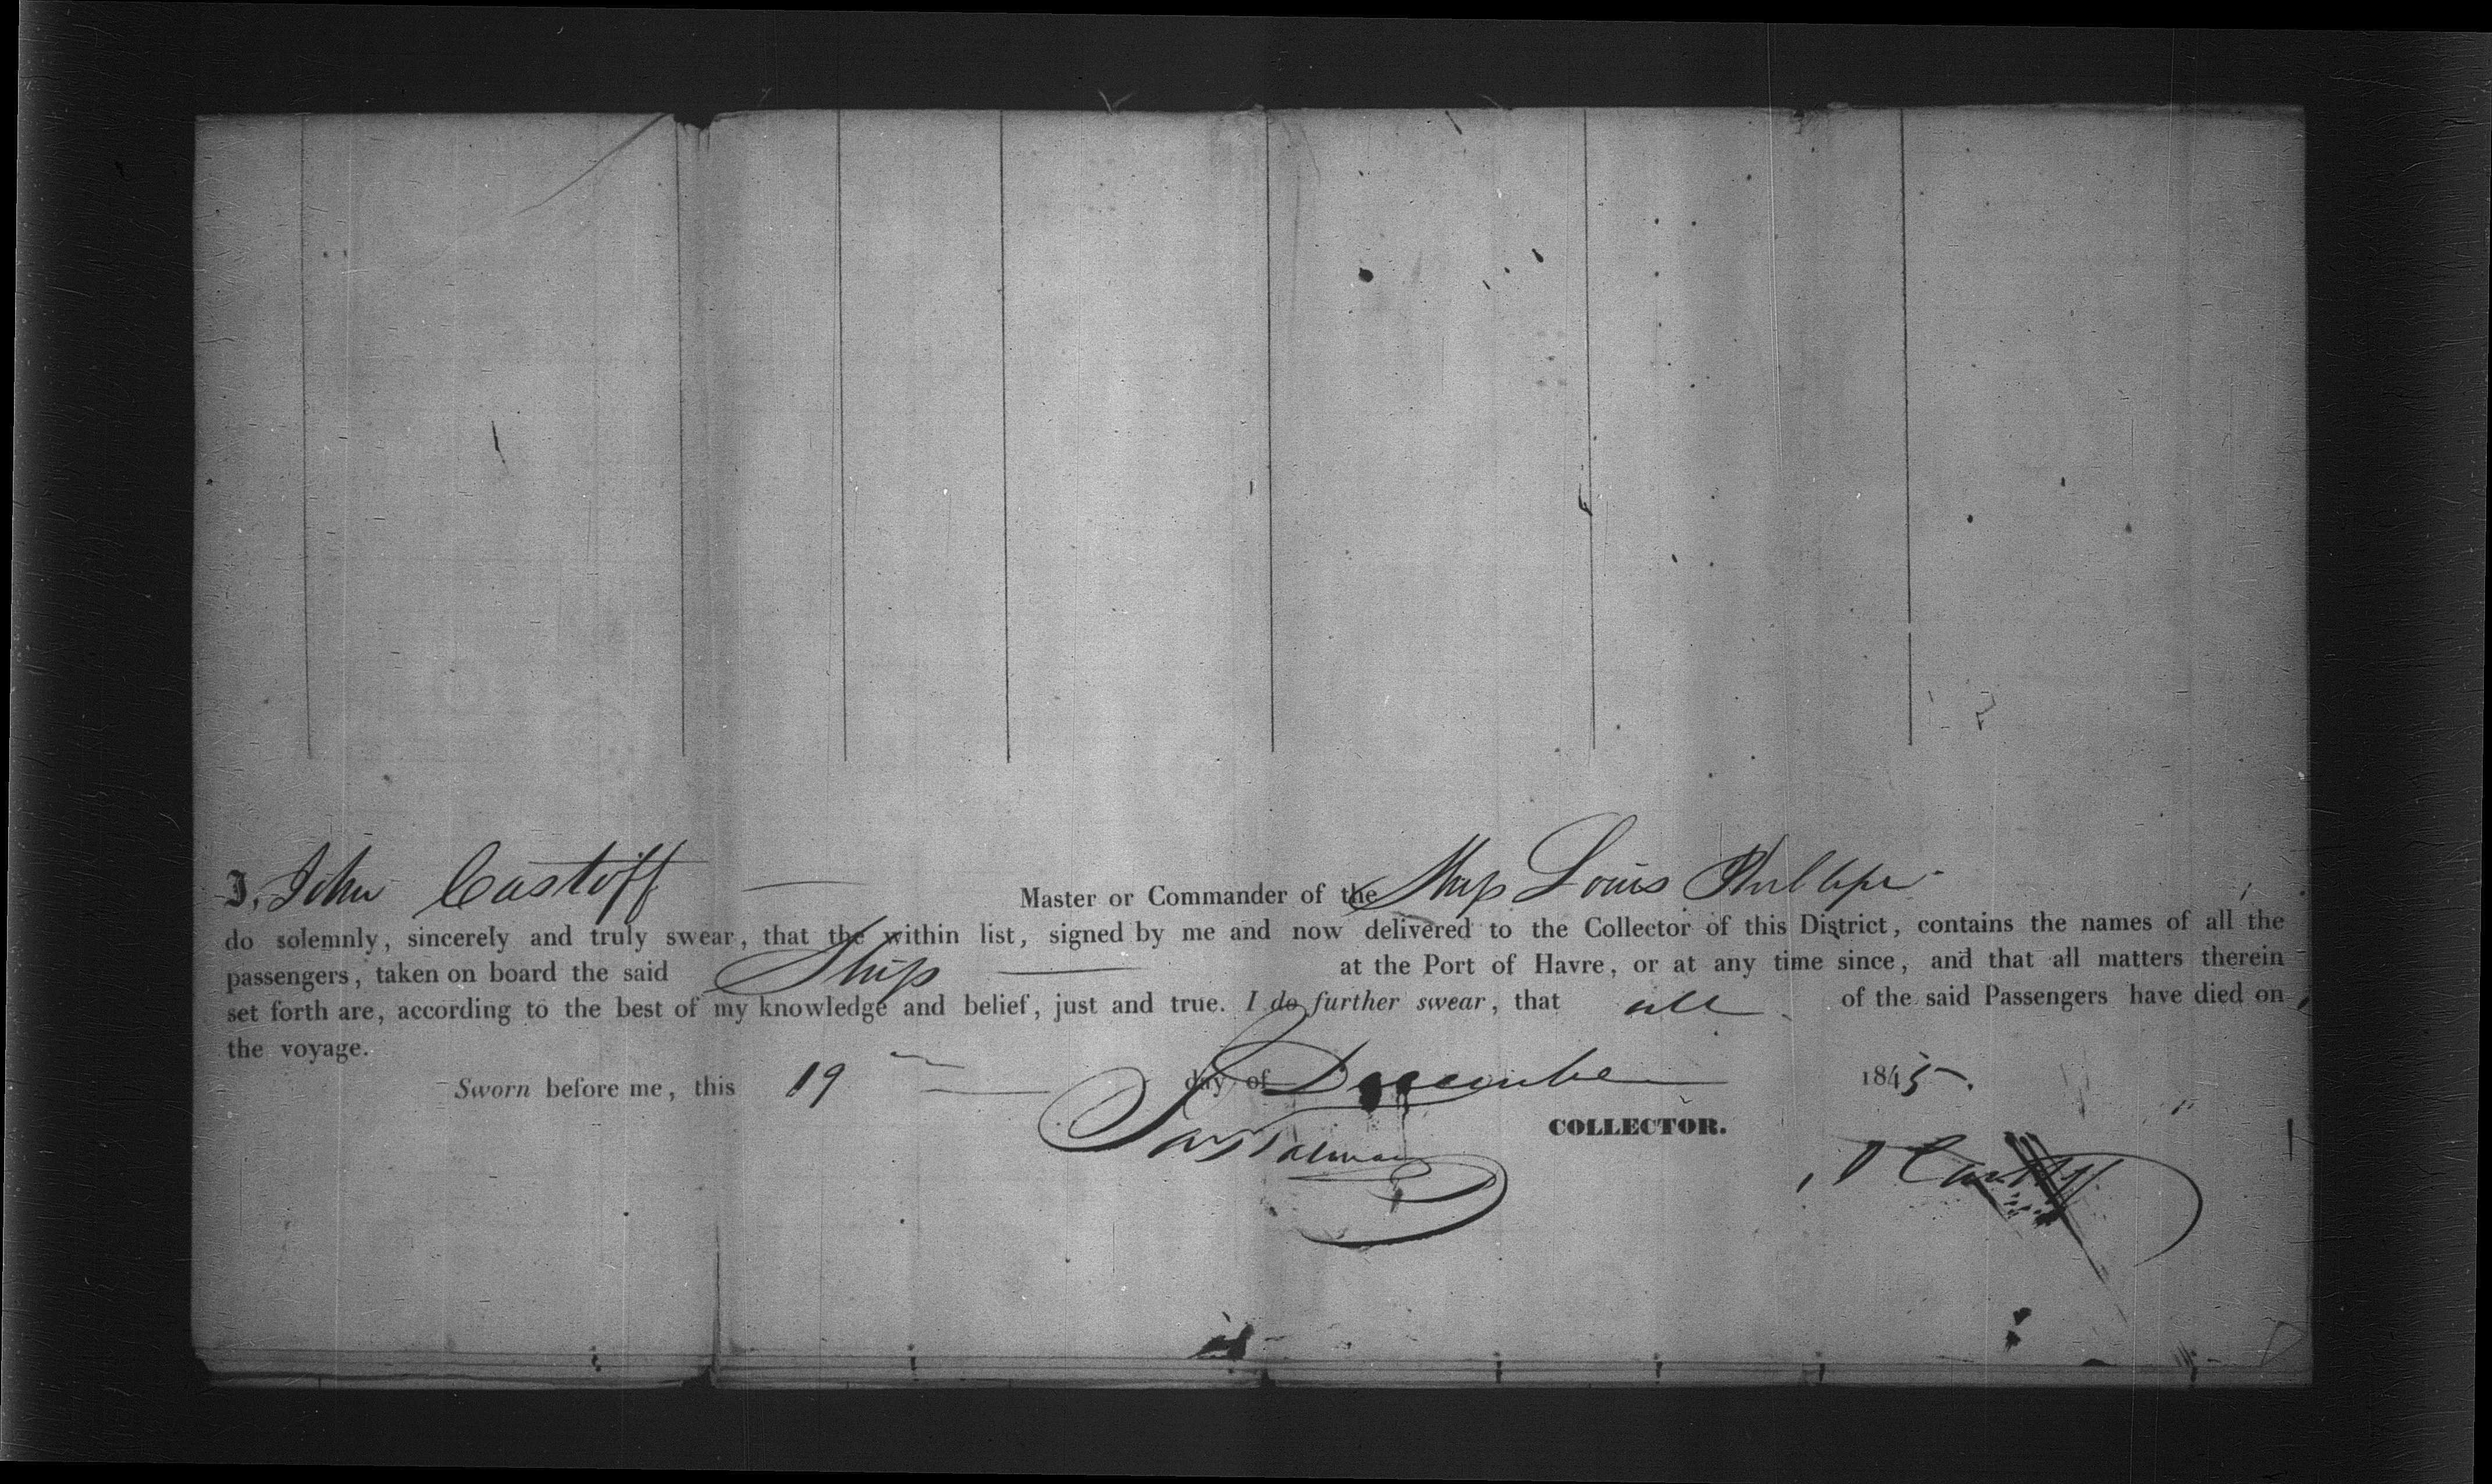 I, John Castoff Master or Commander of the Ship Louis Phillipe
do solemnly, sincerely and truly swear, that the within list, signed by me and now delivered to the Collector of this District, contains the names of all the
passengers, taken on board the said Ship at the Port of Havre, or at any time since, and that all matters therein
set forth are, according to the best of my knowledge and belief, just and true. I do further swear, that all of the said Passengers have died on
the voyage.
Sworn before me, this 19 day of December 1845.
COLLECTOR.